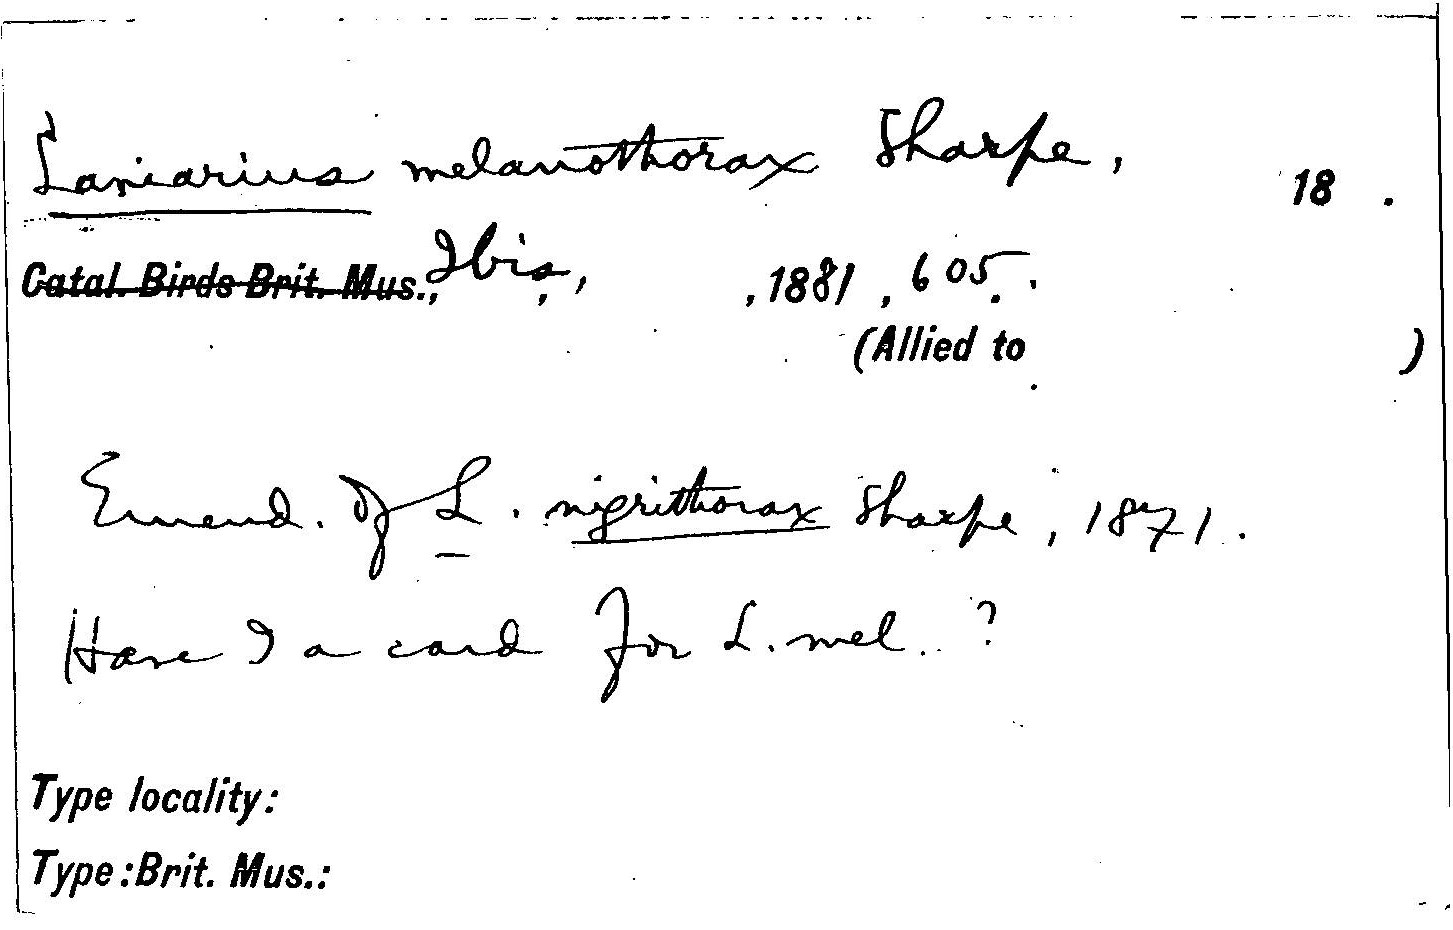 Laniarius melanothorax Sharpe, 18 .
Catal. Birds Brit. Mus., Ibis, , 1881 , 605.
(Allied to )
Emend. of L. nigrithorax Sharpe, 1871.
Have I a card for L. mel. ?
Type locality:
Type: Brit. Mus.: